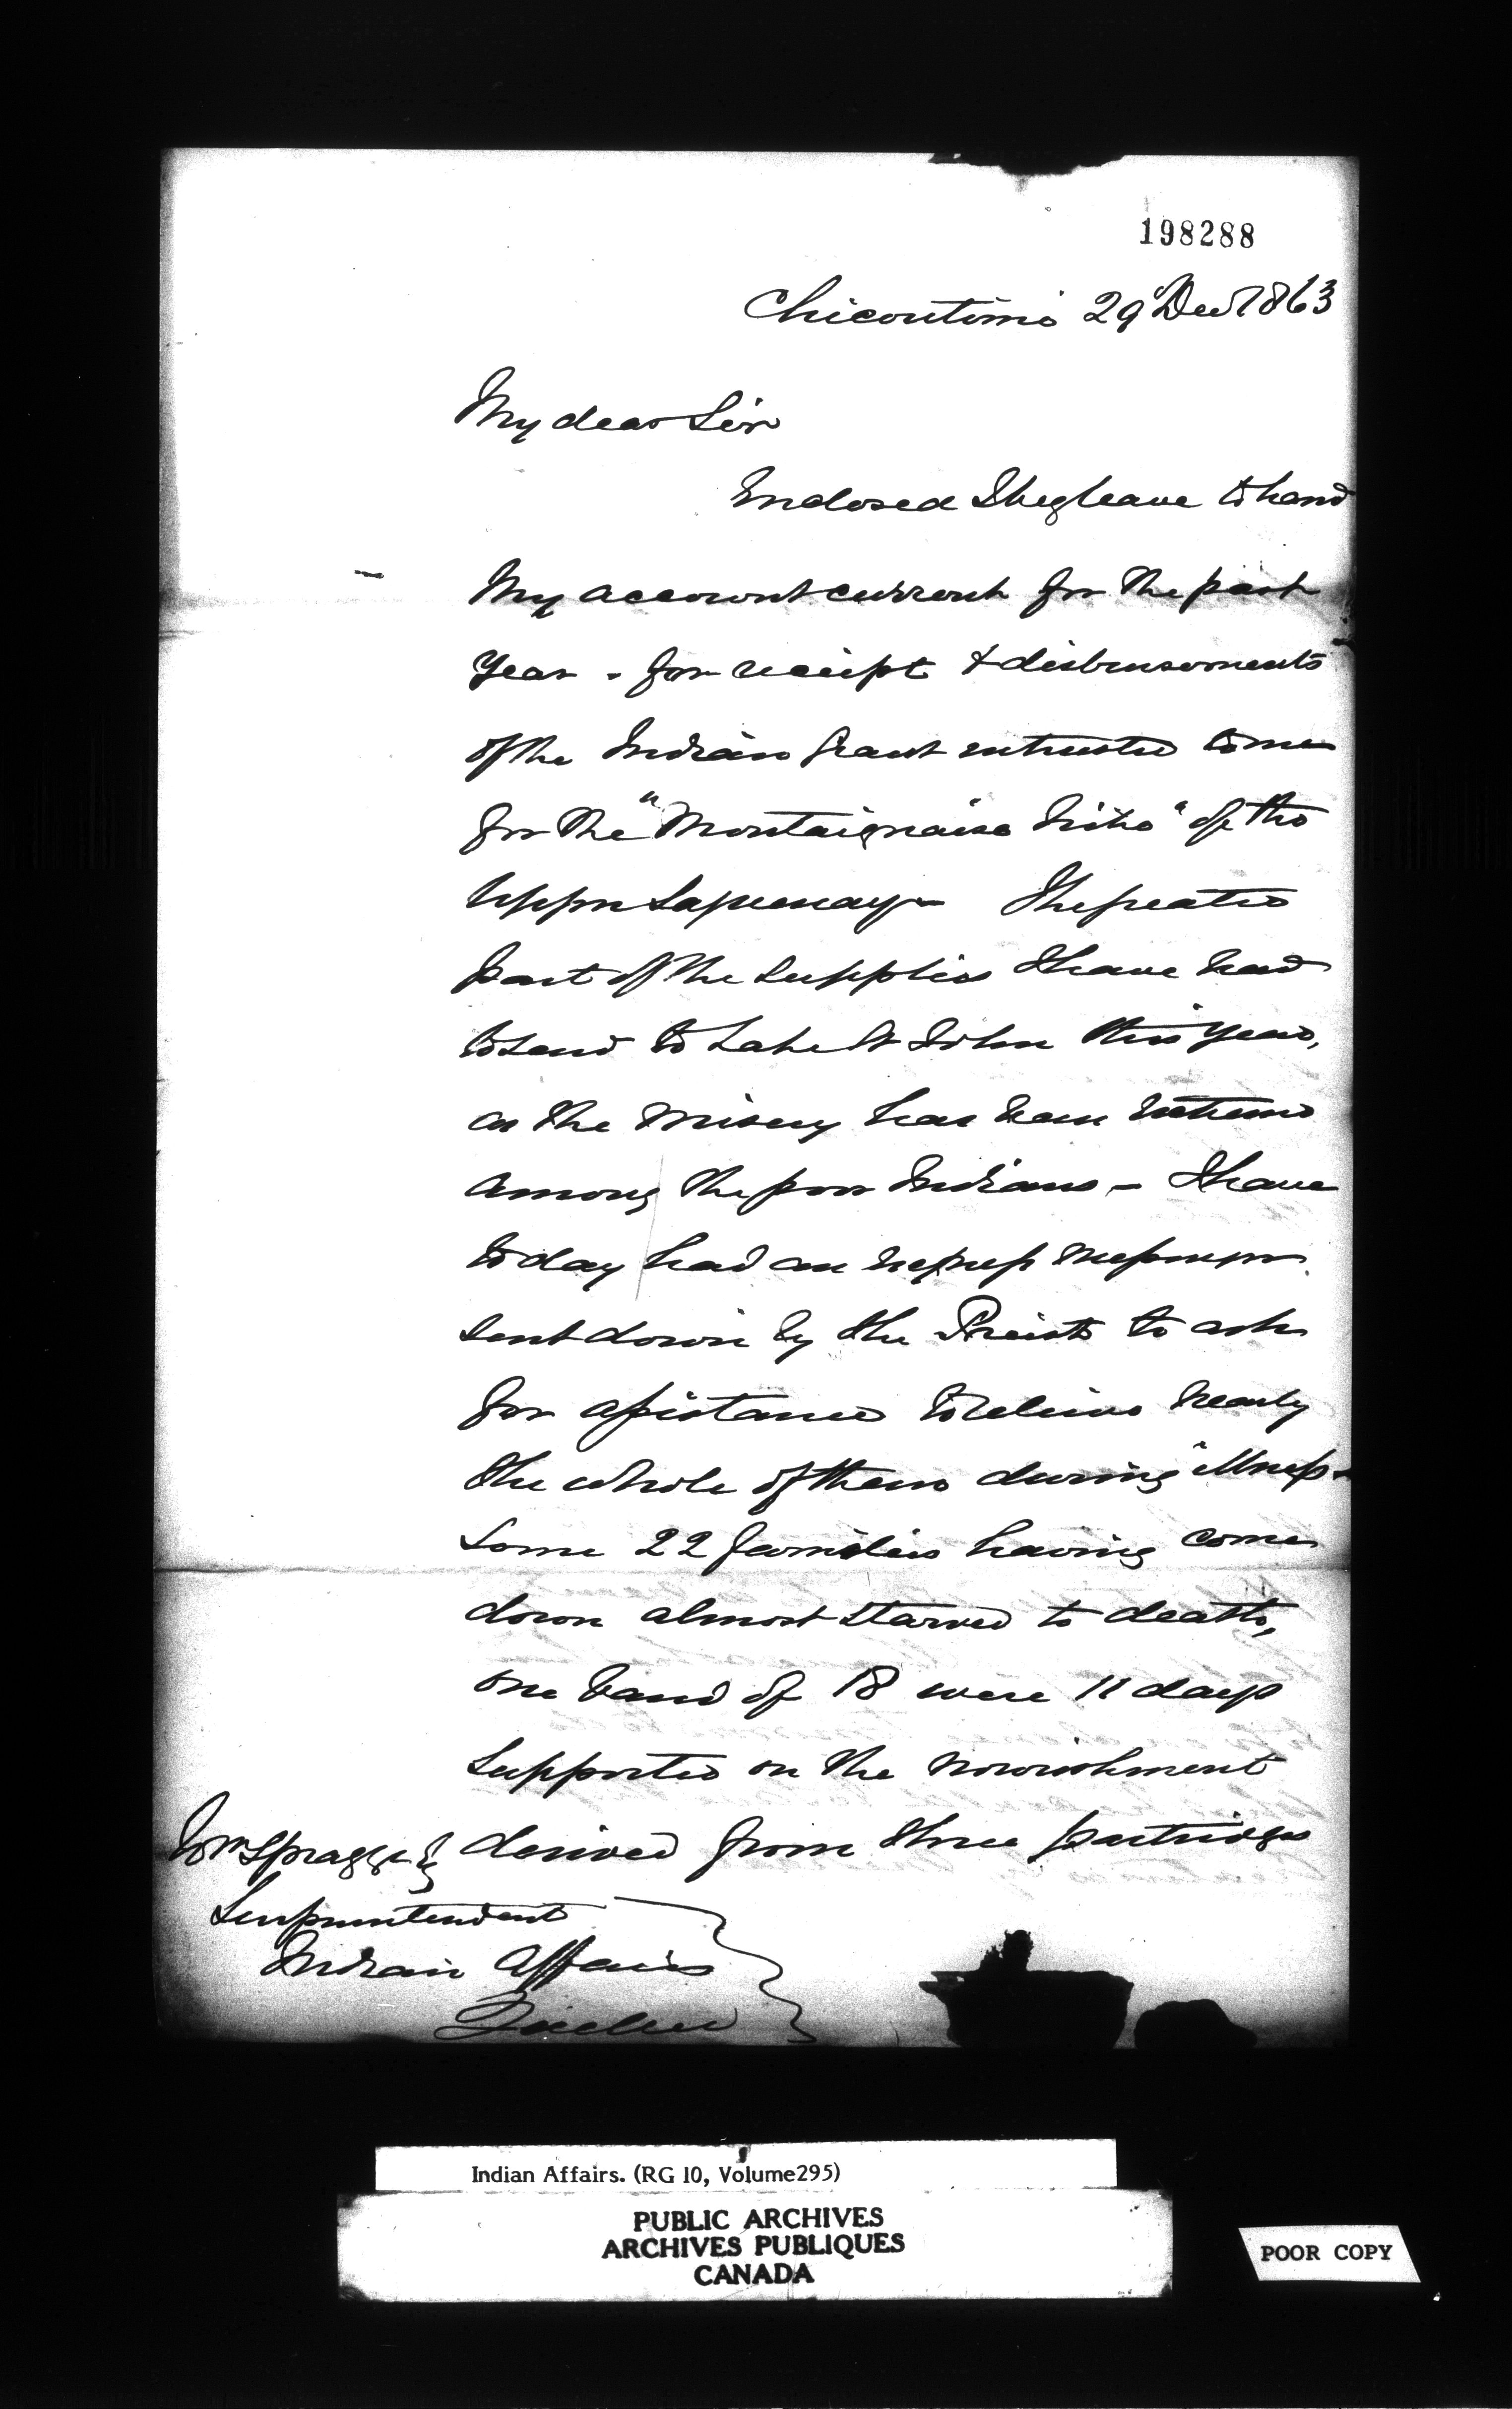 198288
Chicoutimi 29 Dec 1863
My dear Sir
Enclosed I beg leave to hand
my account current for the past
year - for receipt & disbursements
of the Indian Grant entrusted to me
for the "Montaignaise Tribe" of the
Upper Saguenay - The greater
part of the supplies I have had
to send to Lake St John this year,
as the misery has been extreme
among the poor Indians - I have
today had an express messenger
sent down by the Preists to ask
for assistance to relieve nearly
the whole of them during illness -
Some 22 families having come
down almost starved to death,
one band of 18 were 11 days
supported on the nourishment
derived from three partridges
Wm Spragge Esq
Superintendent
Indian Affairs
Quebec
Indian Affairs. (RG 10, Volume295)
PUBLIC ARCHIVES
ARCHIVES PUBLIQUES
CANADA
POOR COPY